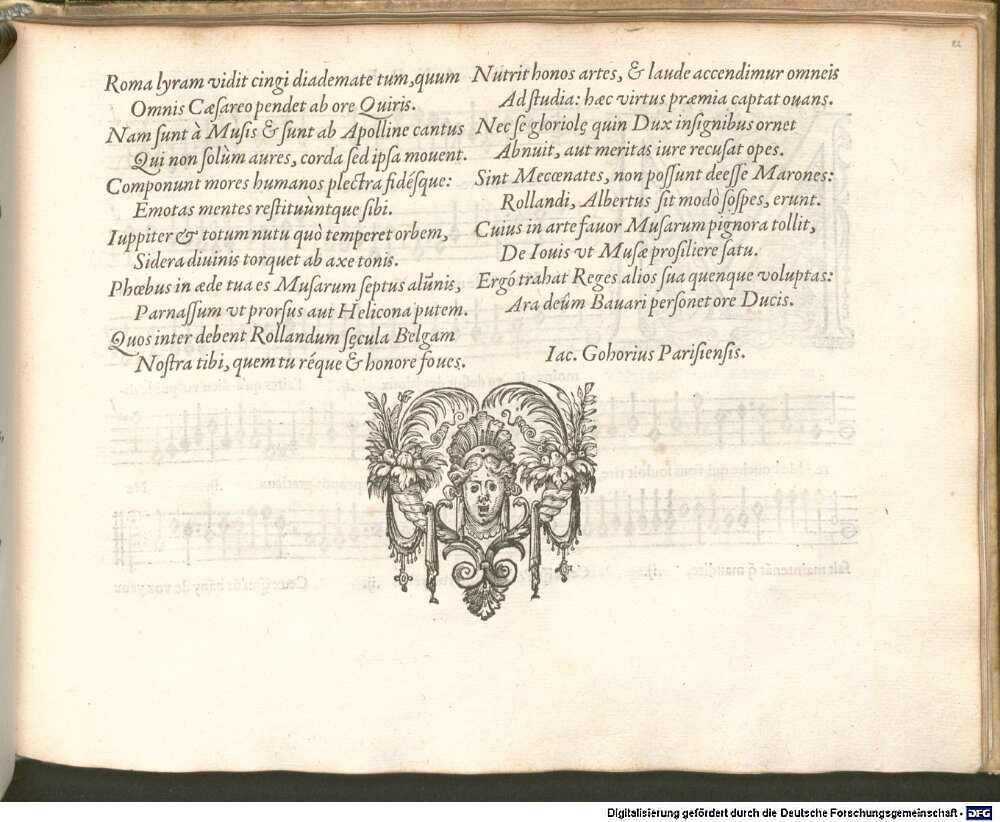 82
Roma lyram vidit cingi diademate tum, quum
Omnis Cæsareo pendet ab ore Quiris.
Nam sunt à Musis & sunt ab Apolline cantus
Qui non solùm aures, corda sed ipsa mouent.
Componunt mores humanos plectra fidésque:
Emotas mentes restituùntque sibi.
Iuppiter & totum nutu quò temperet orbem,
Sidera diuinis torquet ab axe tonis.
Phœbus in æde tua es Musarum septus alũnis,
Parnassum vt prorsus aut Helicona putem.
Quos inter debent Rollandum sęcula Belgam
Nostra tibi, quem tu réque & honore foues.
Nutrit honos artes, & laude accendimur omneis
Ad studia: hæc virtus præmia captat ouans.
Nec se gloriolę quin Dux insignibus ornet
Abnuit, aut meritas iure recusat opes.
Sint Mecœnates, non possunt deesse Marones:
Rollandi, Albertus sit modò sospes, erunt.
Cuius in arte fauor Musarum pignora tollit,
De Iouis vt Musæ prosiliere satu.
Ergó trahat Reges alios sua quenque voluptas:
Ara deûm Bauari personet ore Ducis.
Iac. Gohorius Parisiensis.
Digitalisierung gefördert durch die Deutsche Forschungsgemeinschaft - DFG